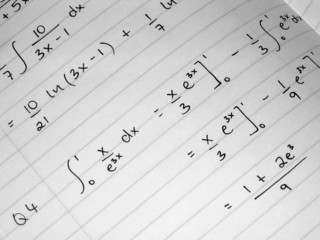 + 5x
1/7 ∫ 10/(3x-1) dx
= 10/21 ln(3x-1) + 1/7 ln
Q4 ∫₀¹ x/e³ˣ dx = x/3 e³ˣ]₀¹ - 1/3 ∫₀¹ e³ˣ dx
= x/3 e³ˣ]₀¹ - 1/9 e³ˣ]¹
= (1 + 2e³)/9